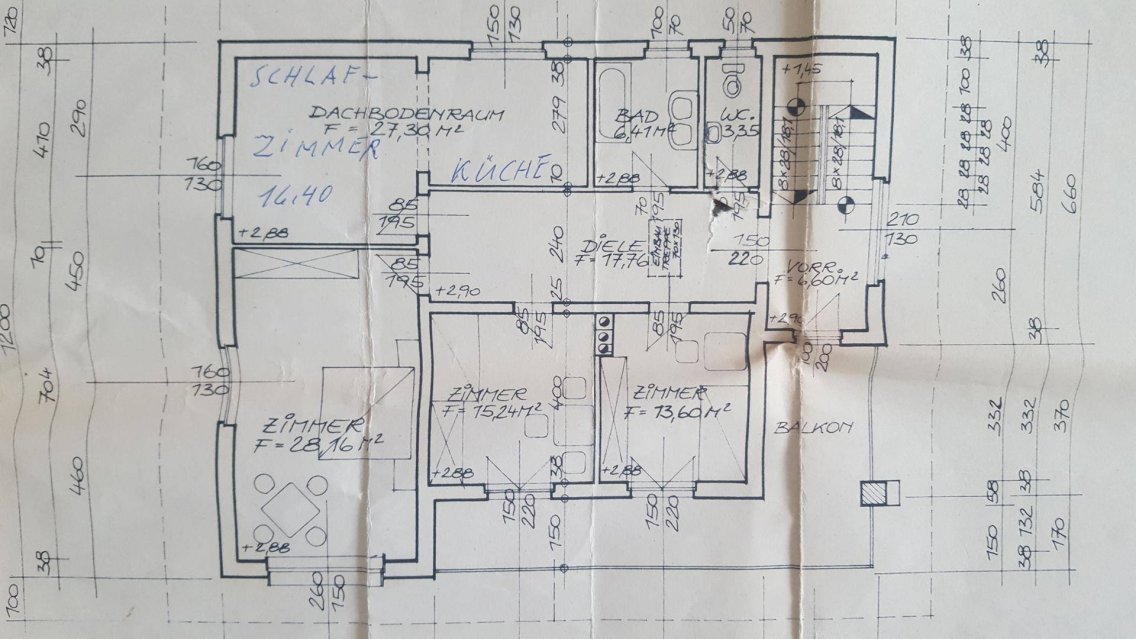 720
150
130
100
70
50
70
38
290
410
SCHLAF-
DACHBODENRAUM
F = 27,30 M²
ZIMMER
16.40
KÜCHE
+2,88
38
279
10
BAD
6,41M²
+2,88
WC.
3,35
+2,88
+1,45
8×28/18,1
8×28/18,1
38
100
28
28
28
28
28
28
400
38
584
660
160
130
85
195
70
195
195
10
450
85
195
+2,90
240
25
DIELE
F = 17,76
EINBAU
TREPPE
70×130
150
220
210
130
VORR.
F = 6,60M²
+2,90
260
38
100
200
1200
704
160
130
85
195
85
195
ZIMMER
F = 28,16 M²
+2,88
ZIMMER
F = 15,24M²
+2,88
400
38
ZIMMER
F = 13,60M²
+2,88
BALKON
332
332
370
460
38
150
220
150
150
220
58
38
150
132
38
170
100
260
150